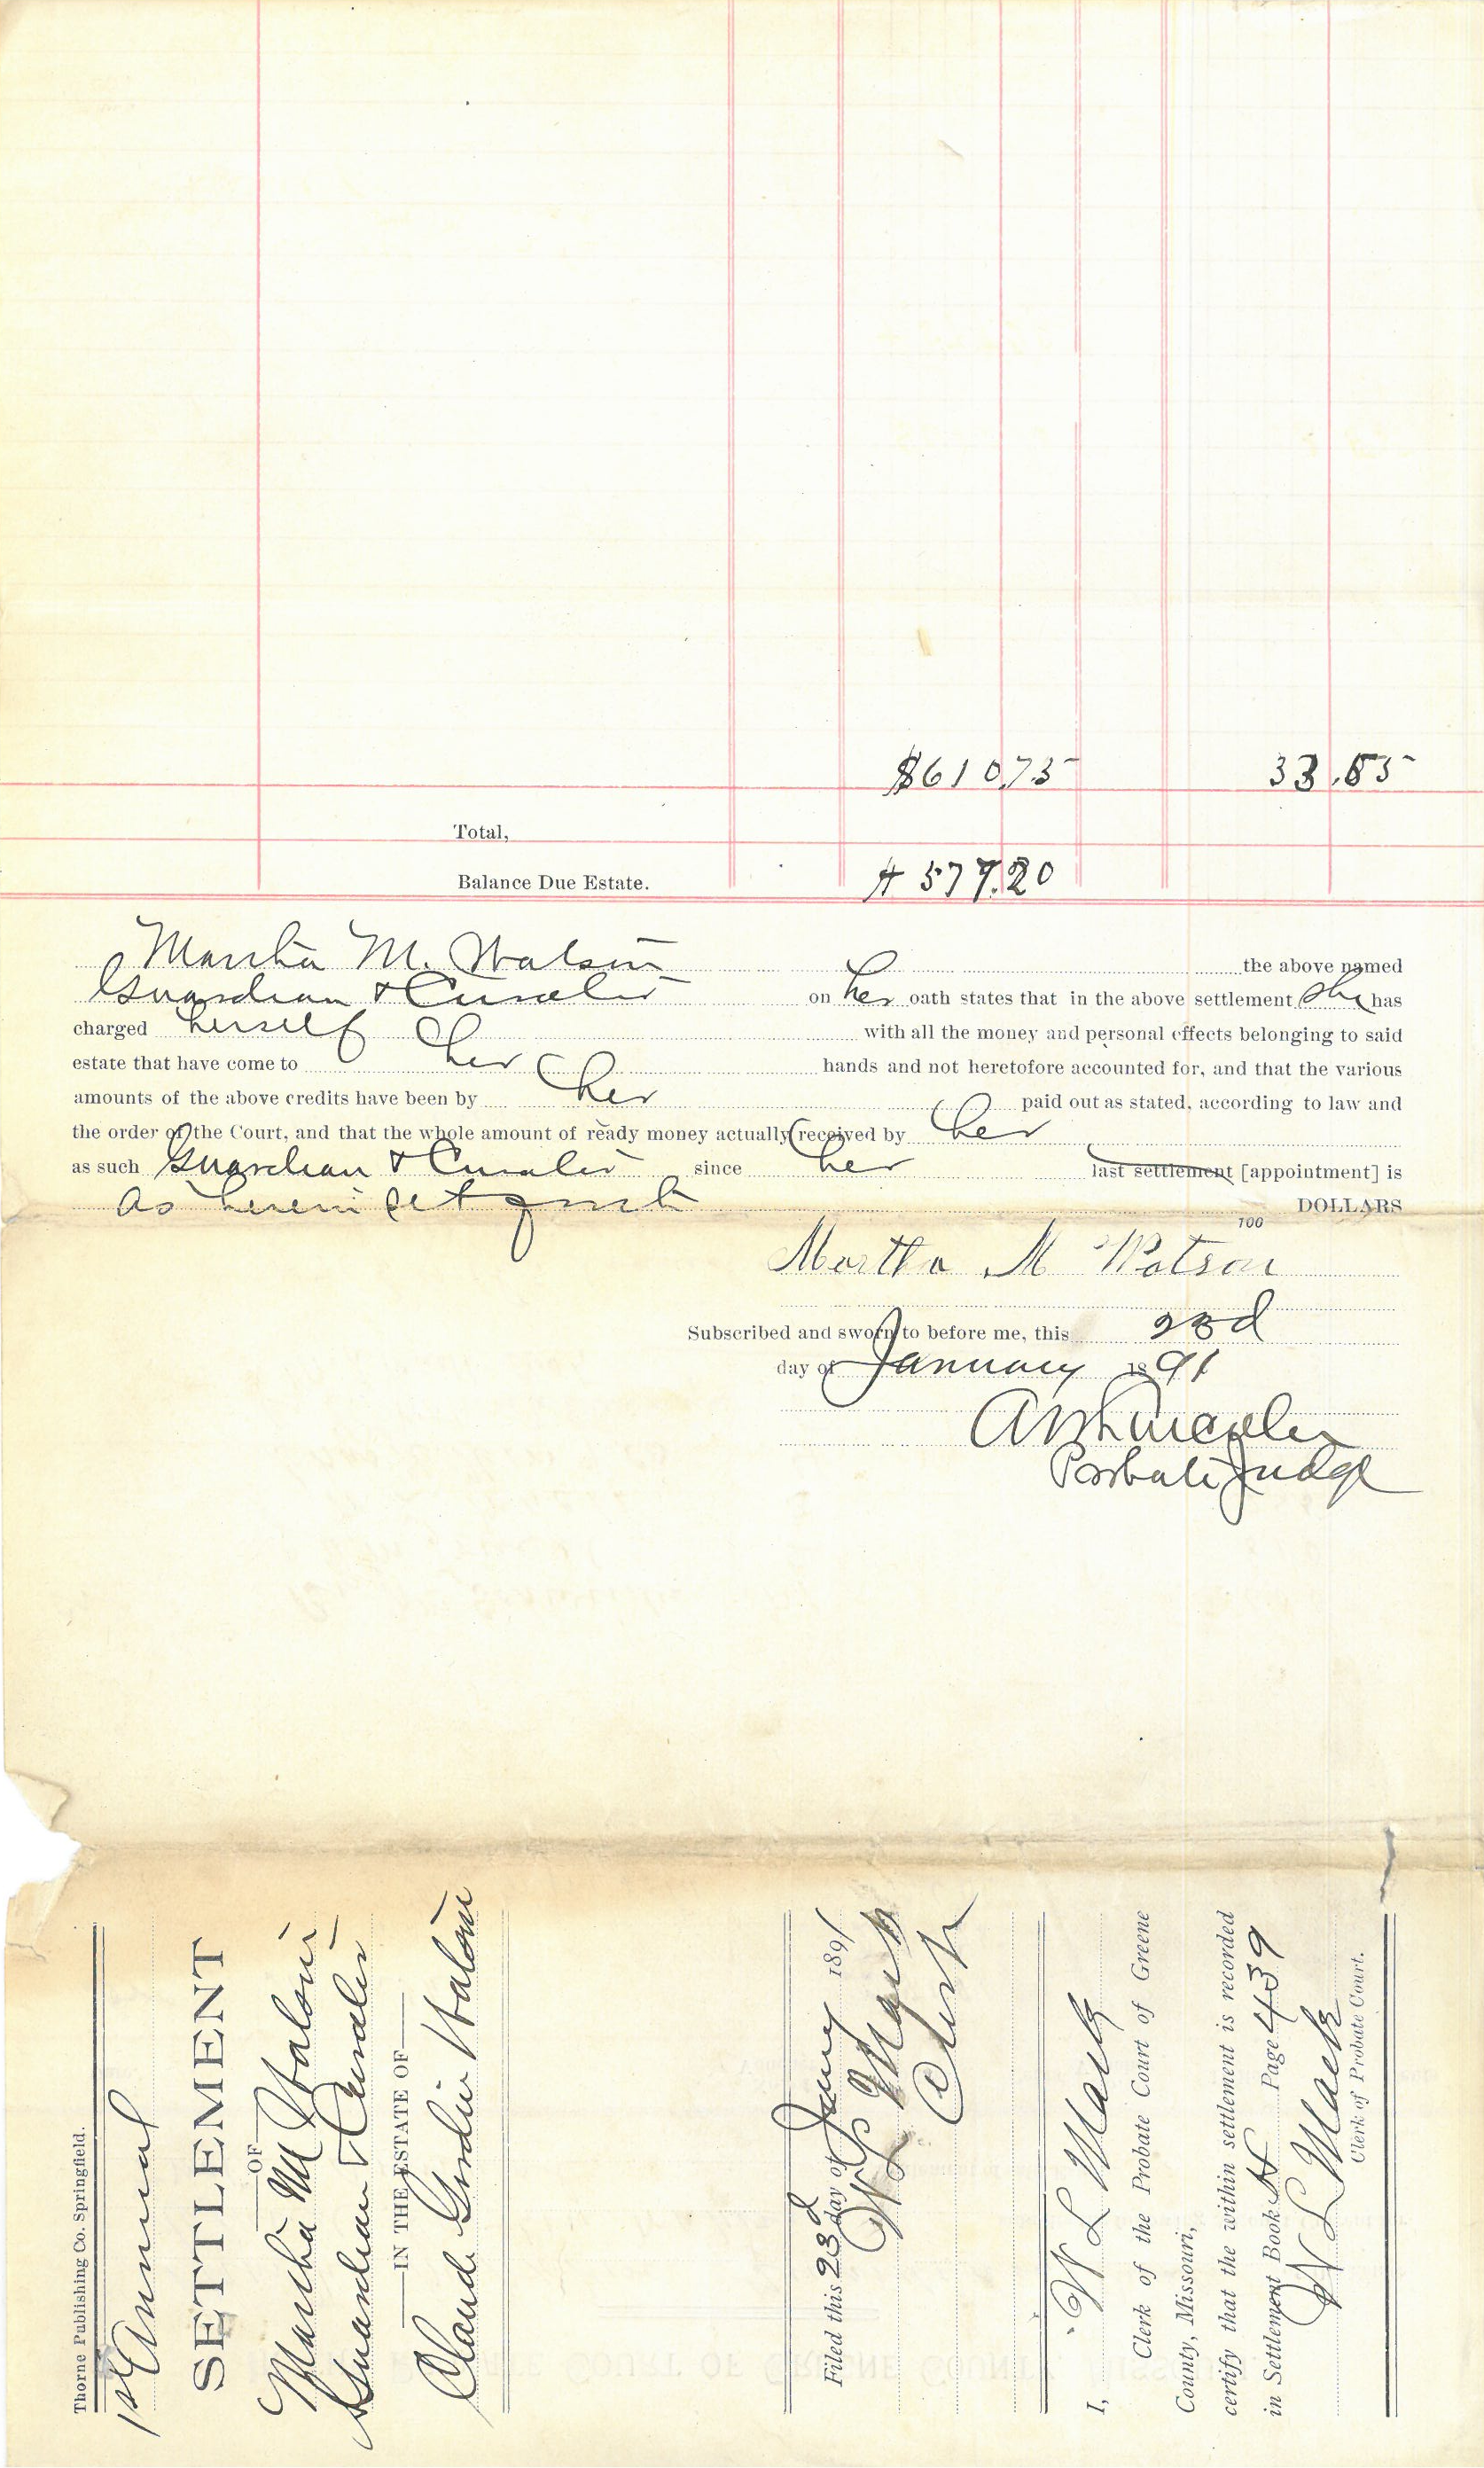 $610.75 33.55
Total,
Balance Due Estate. $577.20
Martha M. Watson the above named
Guardian & Curator on her oath states that in the above settlement she has
charged herself with all the money and personal effects belonging to said
estate that have come to her hands and not heretofore accounted for, and that the various
amounts of the above credits have been by her paid out as stated, according to law and
the order of the Court, and that the whole amount of ready money actually received by her
as such Guardian & Curator since her last settlement [appointment] is
as herein set forth 100 DOLLARS
Martha M Watson
Subscribed and sworn to before me, this 23d
day of January 1891
Probate Judge
Thorne Publishing Co. Springfield.
1st Annual
SETTLEMENT
OF
Martha M Watson
Guardian & Curator
IN THE ESTATE OF
Claude Watson
Filed this 23d day of Jany 1891
W L Mack
Clerk
I, W L Mack
Clerk of the Probate Court of Greene
County, Missouri,
certify that the within settlement is recorded
in Settlement Book H Page 439
W L Mack
Clerk of Probate Court.